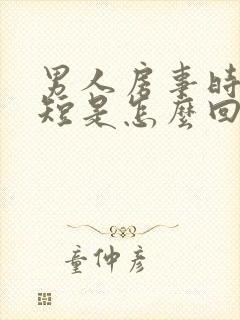 男人房事時
短是怎麼回
童仲彥